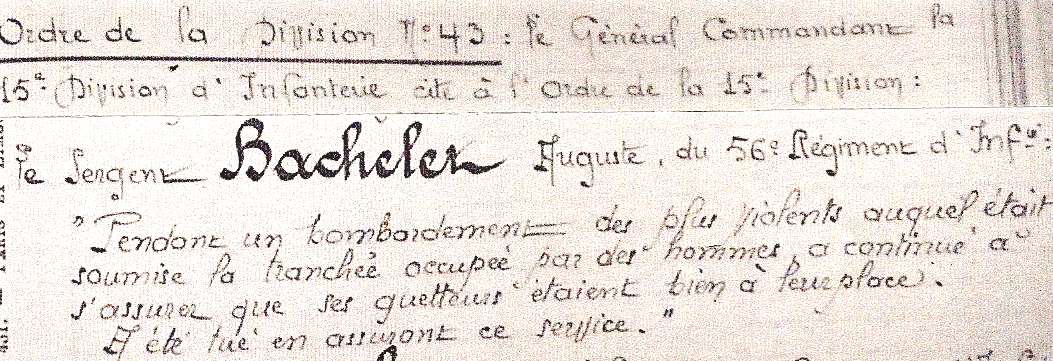 Ordre de la Division N° 43 : le Général Commandant la
15e Division d'Infanterie cite à l'ordre de la 15e Division :
le Sergent Bacheler Auguste, du 56e Régiment d'Infie :
"Pendant un bombardement des plus violents auquel était
soumise la tranchée occupée par des hommes, a continué à
s'assurer que ses guetteurs étaient bien à leur place.
A été tué en assurant ce service."